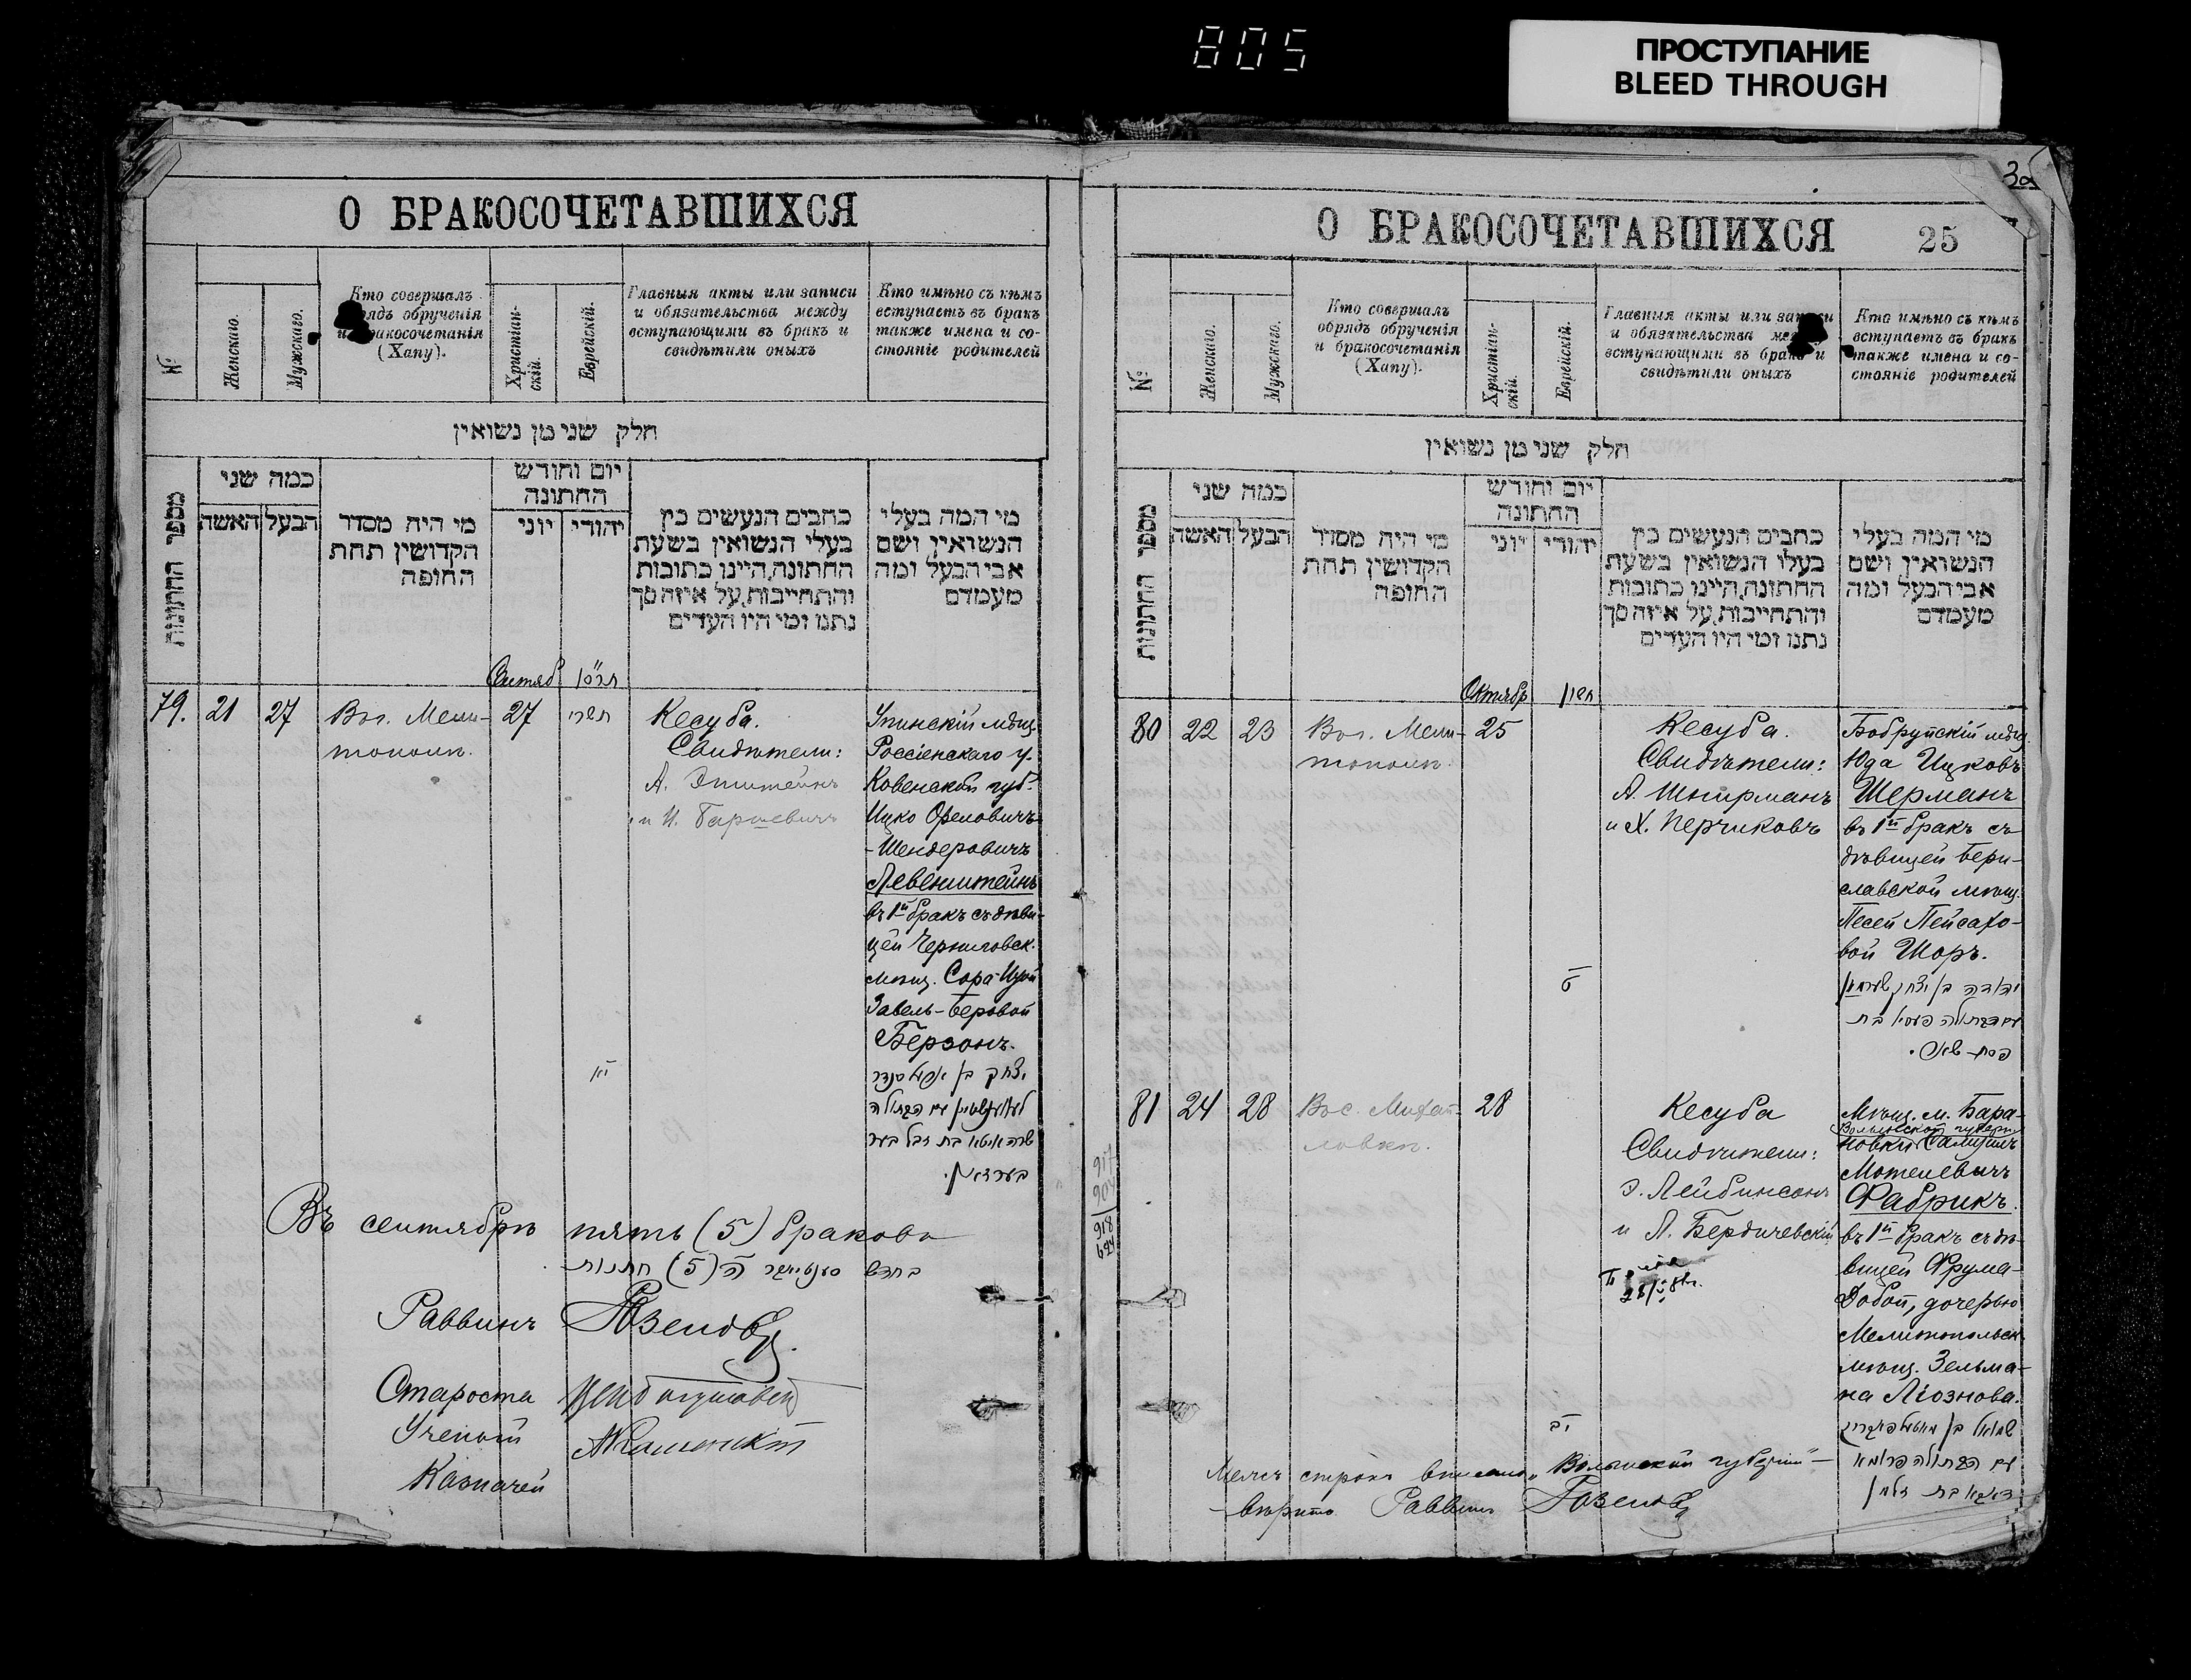 805
ПРОСТУПАНИЕ
BLEED THROUGH
О БРАКОСОЧЕТАВШИХСЯ
№
Женскаго.
Мужскаго.
Кто совершалъ
обрядъ обрученія
и бракосочетанія
(Хапу).
Христіан-
скій.
Еврейскій.
Главныя акты или записи
и обязательства между
вступающими въ бракъ и
свидѣтили оныхъ
Кто имѣно съ кѣмъ
вступаетъ въ бракъ
также имена и со-
стояніе родителей
חלק שני מן נשואין
מספר החתונות
כמה שני
האשה
הבעל
מי היה מסדר
הקדושין תחת
החופה
יום וחודש
החתונה
יוני
יהודי
כתבים הנעשים בין
בעלי הנשואין בשעת
החתונה, היינו כתובות
והתחייבות, על איזה סך
נתנו ומי היו העדים
מי המה בעלי
הנשואין ושם
אבי הבעל ומה
מעמדם
Сентяб
79. 21 27
Воз. Мели-
тополь.
27
תשרי
יא
Кесуба.
Свидѣтели:
А. Эпштейнъ
и И. Баршевичъ
Упинскій мѣщ.
Россіенскаго у.
Ковенской губ.
Ицко Ореловичъ
-Шендеровичъ
Левенштейнъ
въ 1й бракъ съ дѣви-
цей Черниловск.
мѣщ. Сора-Идой
Завель-Беровой
Берзонъ.
יצחק בן
שרה איטא בת זבל בער
בערזאן.
Въ сентябрѣ пять (5) браковъ
בחדש סענטיאבר ה׳ (5) חתונות
Раввинъ
Староста
Ученый
Казначей
О БРАКОСОЧЕТАВШИХСЯ 25
№
Женскаго.
Мужскаго.
Кто совершалъ
обрядъ обрученія
и бракосочетанія
(Хапу).
Христіан-
скій.
Еврейскій.
Главныя акты или записи
и обязательства между
вступающими въ бракъ и
свидѣтили оныхъ
Кто имѣно съ кѣмъ
вступаетъ въ бракъ
также имена и со-
стояніе родителей
חלק שני מן נשואין
מספר החתונות
כמה שני
האשה
הבעל
מי היה מסדר
הקדושין תחת
החופה
יום וחודש
החתונה
יוני
יהודי
כתבים הנעשים בין
בעלי הנשואין בשעת
החתונה, היינו כתובות
והתחייבות, על איזה סך
נתנו ומי היו העדים
מי המה בעלי
הנשואין ושם
אבי הבעל ומה
מעמדם
Октябрь
חשון
80 22 23
Воз. Мели-
тополь.
25
ט
Кесуба.
Свидѣтели:
А. Шнирманъ
и Х. Перчиковъ
Бобруйскій мѣщ.
Юда Ицковъ
Шерманъ
въ 1й бракъ съ
дѣвицей Бери-
славской мѣщ.
Песей Пейсахо-
вой Шоръ.
יהודה בן יצחק שערמאן
עם הבתולה פעסיא בת
פסח שאר.
81 24 28
Вос. Михай-
ловкѣ.
28
יב
Кесуба
Свидѣтели:
Э. Лейбинсонъ
и Л. Бердичевскій
Мѣщ. м. Бара-
Волынской губерн
новки Самуилъ
Мотелевичъ
Фабрикъ.
въ 1й бракъ съ дѣ-
вицей Фрума-
Добой, дочерью
Мелитопольск.
мѣщ. Зельма-
на Ліознова.
שמואל בן מאטל פאבריק
עם הבתולה פרומא
דאבא בת זלמן
917
904
918
624
Межъ строкъ вписано „Волынской губерніи“-
вѣрно Раввинъ